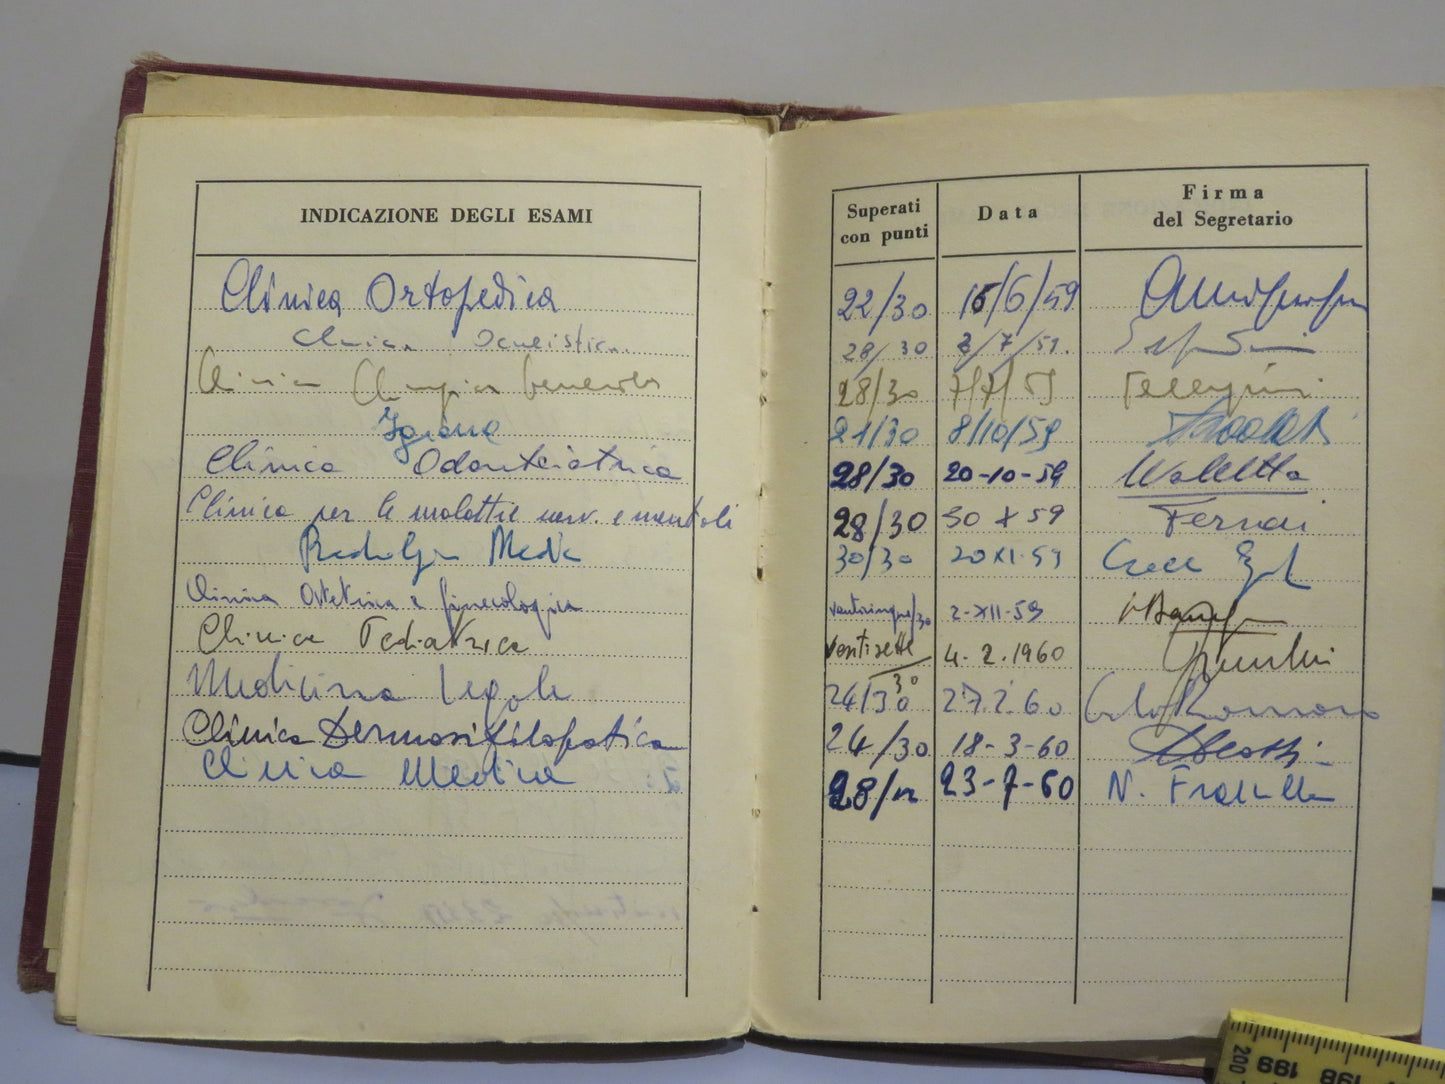 INDICAZIONE DEGLI ESAMI
Superati con punti
Data
Firma del Segretario
Clinica Ortopedica 22/30 15/6/59
Clinica Oculistica 28/30 2/7/59.
Clinica Chirurgica Generale 28/30 7/7/59 Pellegrini
Igiene 21/30 8/10/59
Clinica Odontoiatrica 28/30 20-10-59
Clinica per le malattie nerv. e mentali 28/30 30 X 59
Radiologia Medica 30/30 20 XI. 59
Clinica Ostetrica e ginecologica venticinque/30 2-XII-59
Clinica Pediatrica ventisette/30 4. 2. 1960
Medicina legale 24/30 27.2.60
Clinica Dermosifilopatica 24/30 18-3-60
Clinica Medica 28/ 23-7-60 N.
200 199 198 197